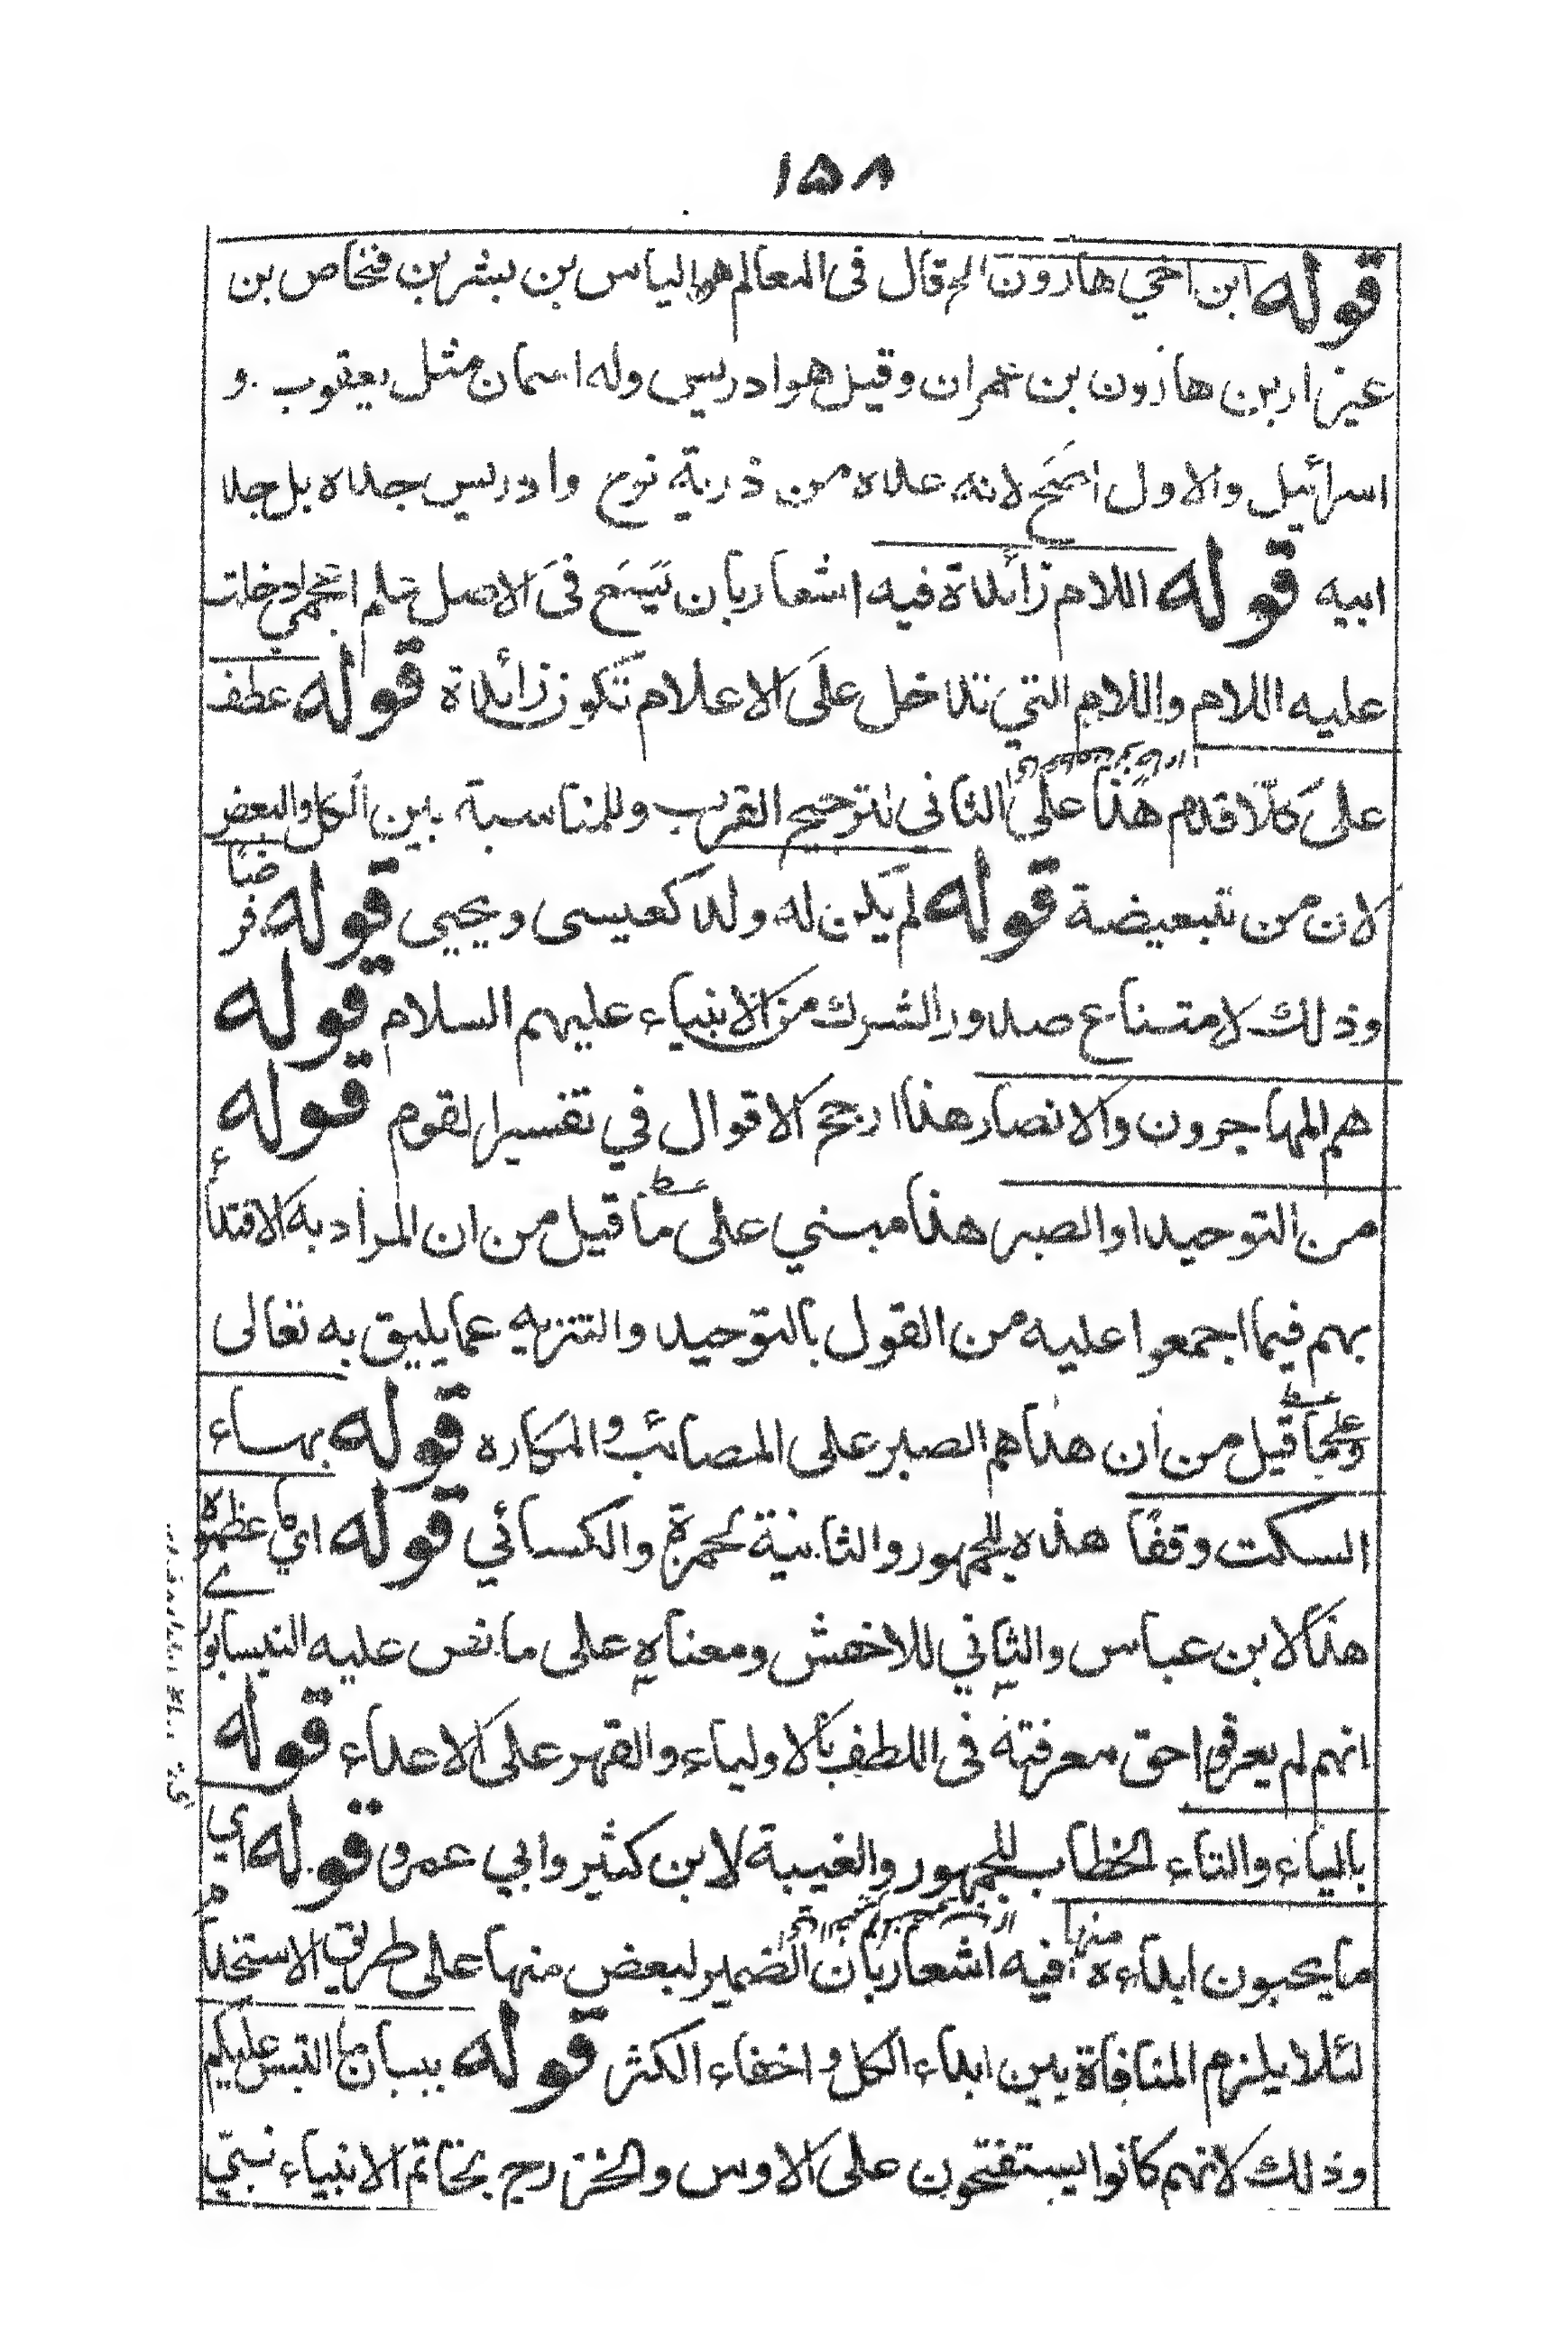 ١٥٨
قوله ابن اخي هارون الخ قال فى المعالم هو الياس بن بشر بن فنخاص بن
عيزار بن هارون بن عمران وقيل هو ادريس وله اسمان مثل يعقوب و
اسرائيل والاول اصح لانه عده من ذرية نوح وادريس جده بل جد
ابيه قوله اللام زائدة فيه اشعار بان يسع فى الاصل علم اعجمي دخلت
عليه اللام واللام التي تدخل على الاعلام تكون زائدة قوله عطف
على كلا قدم هذا على الثاني لترجيح القرب وللمناسبة بين الكل والبعض
لان من تبعيضة قوله لم يكن له ولد كعيسى ويحيى قوله فرضًا
وذلك لامتناع صدور الشرك من الانبياء عليهم السلام قوله
هم المهاجرون والانصار هذا ارجح الاقوال في تفسير القوم قوله
من التوحيد او الصبر هذا مبني على ما قيل من ان المراد به الاقتداء
بهم فيما اجمعوا عليه من القول بالتوحيد والتنزيه عما يليق به تعالى
وعلى ما قيل من ان هذا هم الصبر على المصائب والمكاره قوله بهاء
السكت وقفًا هذه للجمهور والثانية لحمزة والكسائي قوله اي ما عظموه
هذا لابن عباس والثاني للاخفش ومعناه على ما نص عليه النيسابوري
انهم لم يعرفوا حق معرفته فى اللطف بالاولياء والقهر على الاعداء قوله
بالياء والتاء الخطاب للجمهور والغيبة لابن كثير وابي عمرو قوله اي
ما يحبون ابداءه منها فيه اشعار بان الضمير لبعض منها على طريق الاستخدام
لئلا يلزم المنافاة بين ابداء الكل و اخفاء الكثر قوله ببيان ما التبس عليكم
وذلك لانهم كانوا يستفتحون على الاوس والخزرج بخاتم الانبياء نبي